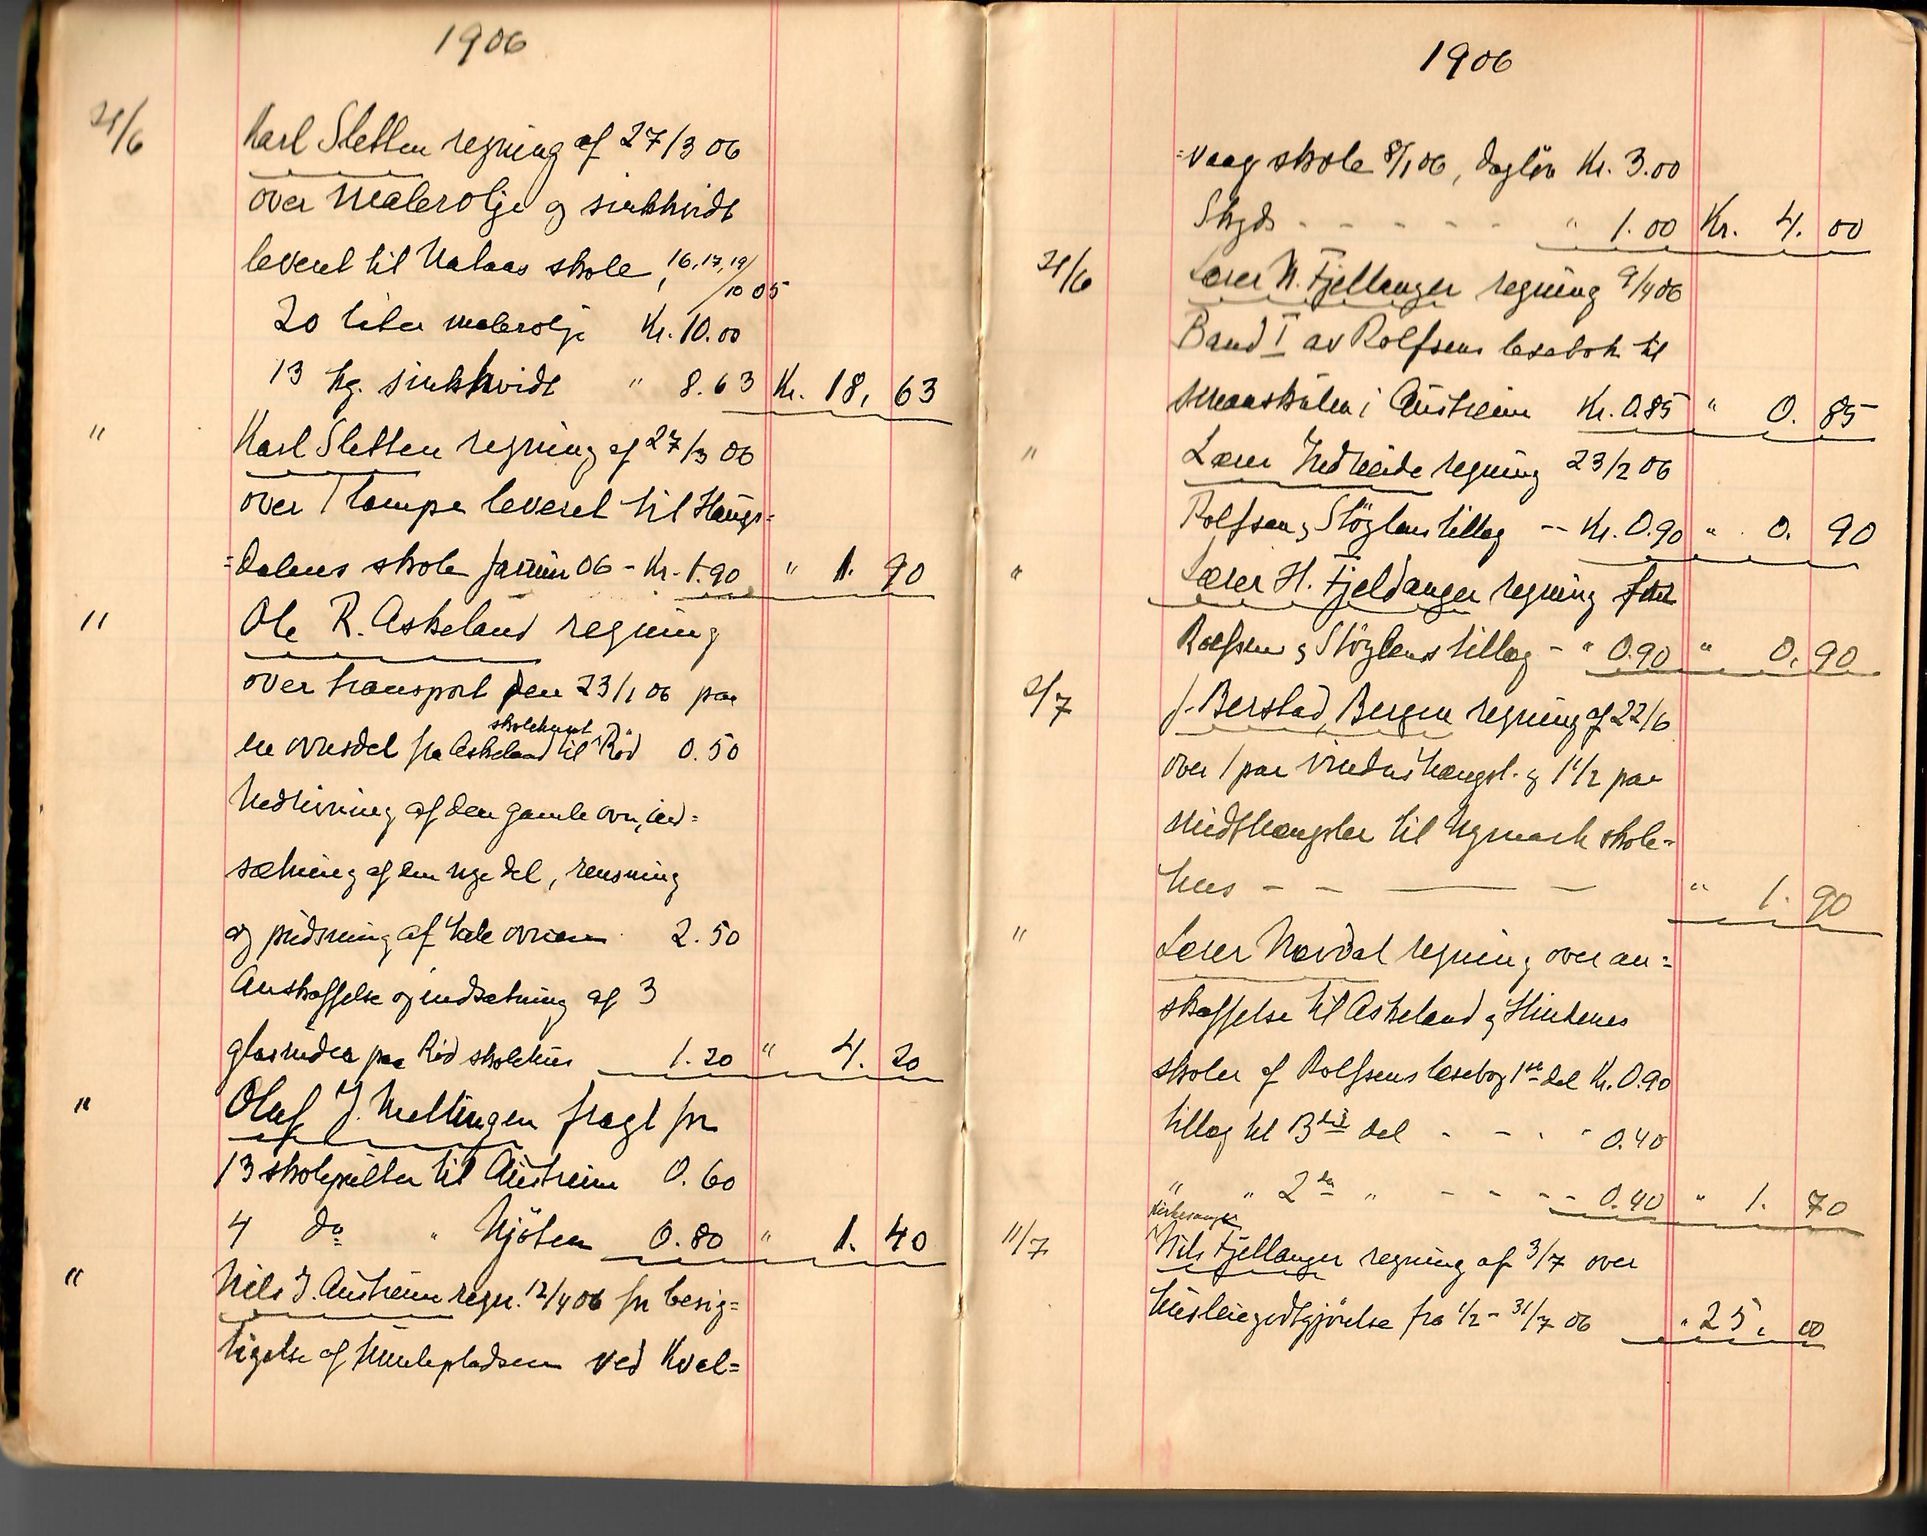 1906
21/6 Karl Sletten regning af 27/3 06
over malerolje og sinkhvidt
leveret til Valaas skole, 16, 17, 19/10 05
20 liter malerolje Kr. 10.00
13 kg. sinkhvidt " 8.63 Kr. 18, 63
" Karl Sletten regning af 27/3 06
over 1 lampe leveret til Haugs=
=dalens skole januar 06 - Kr. 1.90 " 1. 90
" Ole R. Askeland regning
over transport den 23/1 06 paa
skolehuset
en ovnsdel fra Askeland til Rød 0.50
Nedrivning af den gamle ovn, ind=
sætning af den nye del, rensning
og pudsning af hele ovnen 2.50
Anskaffelse og indsætning af 3
glasruder paa Rød skolehus 1.20 " 4. 20
" Oluf J. Mellingen fragt for
13 skolepulter til Austreim 0.60
4 do " Njøten 0.80 " 1. 40
" Nils J. Austreim regn. 12/4 06 for besig=
tigelse af tomtepladsen ved Kval=
1906
=vaag skole 8/1 06, dagløn Kr. 3.00
Skyds - - - - - " 1.00 Kr. 4. 00
21/6 Lærer N. Fjellanger regning 9/4 06
Band I av Rolfsens lesebok til
smaaskulen i Austreim Kr. 0.85 " 0. 85
" Lærer Nedreide regning 23/2 06
Rolfsen og Stöylens tillæg -- Kr. 0.90 " 0. 90
" Lærer H. Fjeldanger regning for
Rolfsen og Stöylens tillæg - " 0.90 " 0. 90
2/7 J. Berstad, Bergen regning af 22/6
over 1 par vindushængsl. og 1 1/2 par
midthængsler til Nymark skole=
hus - - — - " 1. 90
" Lærer Nævdal regning over an=
skaffelse til Askeland og Hindenes
skoler af Rolfsens læsebog 1ste del Kr. 0.90
tillæg til 3die del - - - " 0.40
" " 2den " - - - - 0.40 " 1. 70
kirkesanger
11/7 Nils Fjellanger regning af 3/7 over
husleiegodtgjørelse fra 1/2 - 31/7 06 " 25. 00